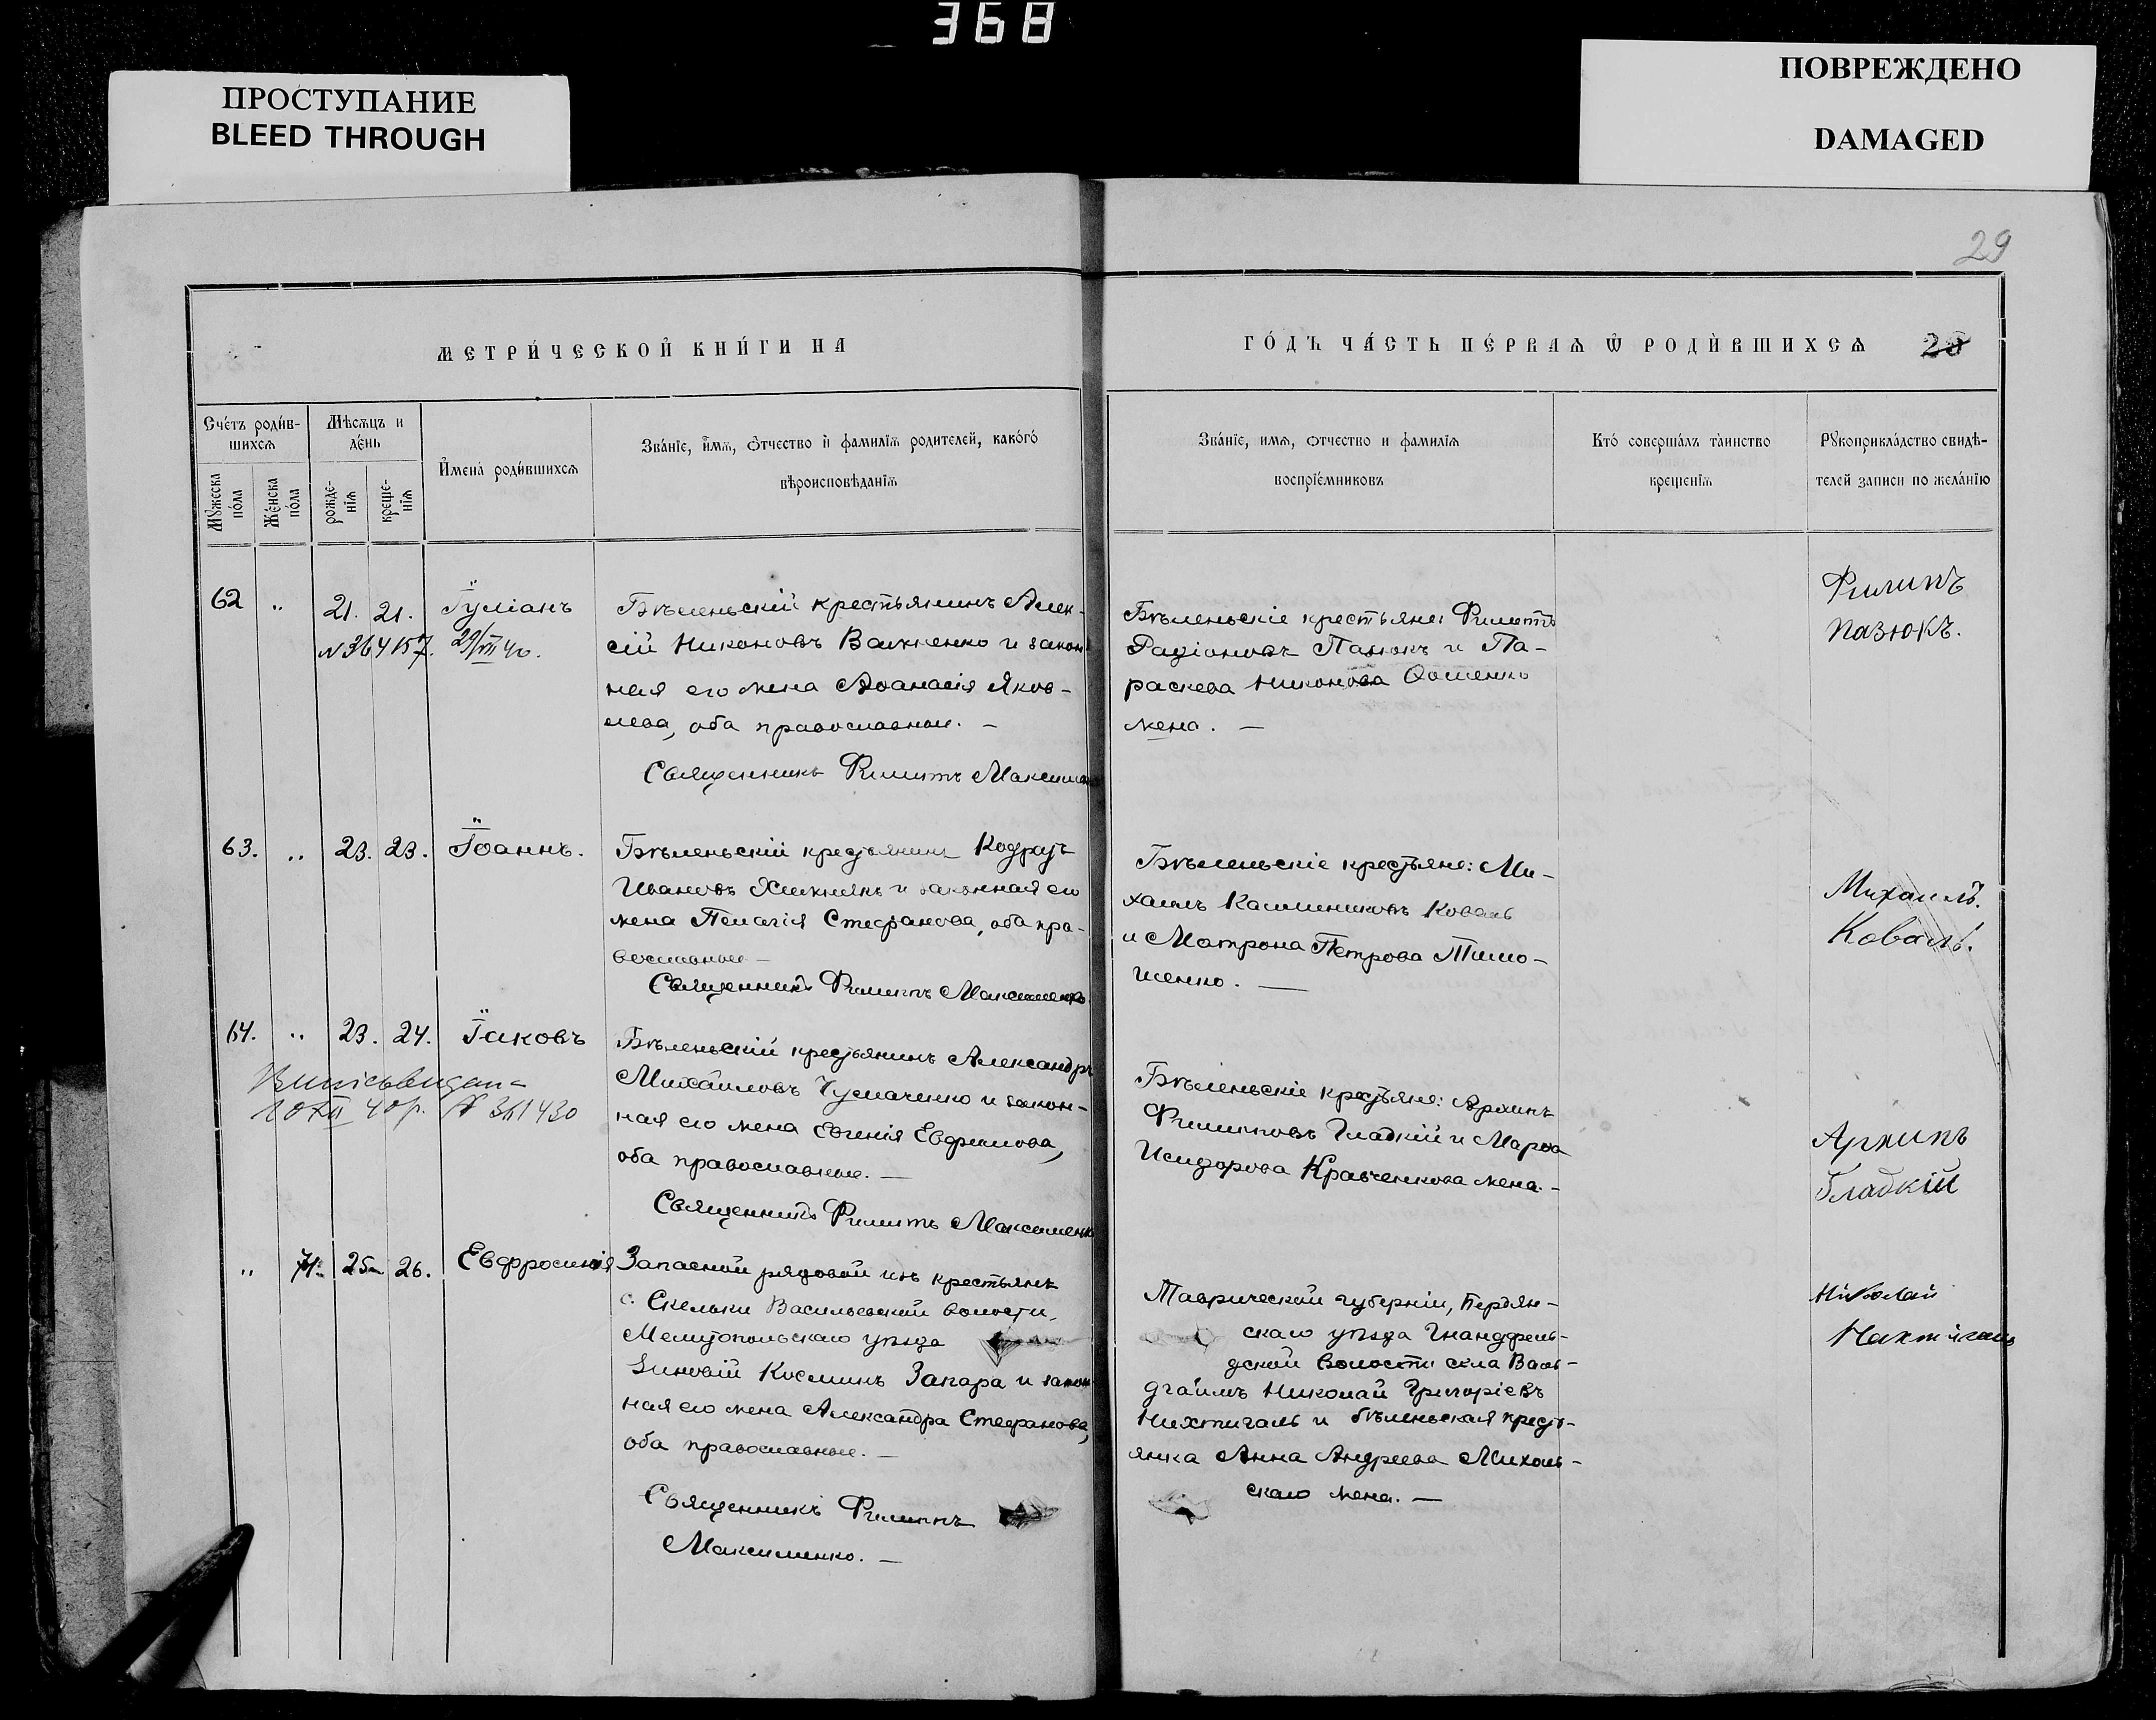 368
ПРОСТУПАНИЕ
BLEED THROUGH
ПОВРЕЖДЕНО
DAMAGED
29
МЕТРИ́ЧЕСКОЙ КНИ́ГИ НА
ГО́ДЪ ЧА́СТЬ ПЕ́РВАѦ Ѿ РОДИ́ВШИХСѦ 28
Сче́тъ роди́в-
шихсѧ
Мѣсѧцъ и
де́нь
Имена́ роди́вшихсѧ
Зва́нїе, и́мѧ, ѻ́тчество и҆ фами́лїѧ родителей, како́гѡ
вѣроисповѣ́данїѧ
Мꙋжеска
по́ла
Же́нска
по́ла
рожде-
нїѧ
креще-
нїѧ
Зва́нїе, имѧ, ѻтчество и фамилїѧ
воспрїе́мниковъ
Кто́ соверша́лъ та́инство
крещенїѧ
Рꙋкоприкла́дство свидѣ-
телей записи по жела́нїю
62 „ 21. 21. Іуліанъ
№364157. 29/VII 40.
Бѣленьскій крестьянинъ Алек-
сій Никоновъ и закон
ная его жена Аѳанасія Яков-
лева, оба православные. —
Священникъ Филиппъ Максименко
Бѣленьскіе крестьяне: Филиппъ
Радіоновъ Пазюкъ и Па-
раскева Никонова
жена. —
Филипъ
Пазюкъ.
63. „ 23. 23. Іоаннъ.
Бѣленьскій крестьянинъ Кодратъ
Ивановъ и законная его
жена Пелагія Стефанова, оба пра-
вославные —
Священникъ Филиппъ Максименко.
Бѣленьскіе крестьяне: Ми-
хаилъ Калинниковъ Коваль
и Матрона Петрова Тимо-
шенко. —
Михаилъ.
Коваль.
64. „ 23. 24. Іаковъ
10 XII 40 р. № 361430
Бѣленьскій крестьянинъ Александръ
Михаиловъ Чумаченко и закон-
ная его жена Евгенія Евфимова,
оба православные. —
Священникъ Филиппъ Максименко
Бѣленьскіе крестьяне: Архипъ
Филипповъ Гладкій и Марѳа
Исидорова Кравченкова жена. —
Архипъ
Гладкій
„ 71. 25. 26. Евфросинія
Запасной рядовой изъ крестьянъ
с. Скельки Васильевской волости,
Мелитопольскаго уѣзда
Зиновій Косминъ Запара и закон
ная его жена Александра Стефанова,
оба православные. —
Священникъ Филиппъ
Максименко. —
Таврической губерніи, Бердян-
скаго уѣзда Гнадффель-
дской волости села Валь-
дгаймъ Николай Григоріевъ
Нихтигаль и бѣленьская кресть-
янка Анна Андреева Михаль-
скаго жена. —
Николай
Нахтигаль